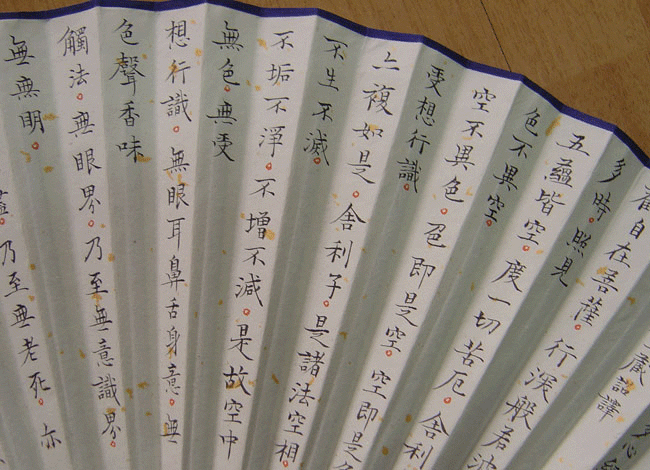 多心
藏詔譯
觀自在菩薩。行深般若波
多時。照見
五蘊皆空。度一切苦厄。舍利
色不異空。
空不異色。色即是空。空即是
受想行識。
亦複如是。舍利子。是諸法空相
不生不滅。
不垢不淨。不增不減。是故空中
無色。無受
想行識。無眼耳鼻舌身意。無
色聲香味
觸法。無眼界。乃至無意識界。
無無明。
盡。乃至無老死。亦